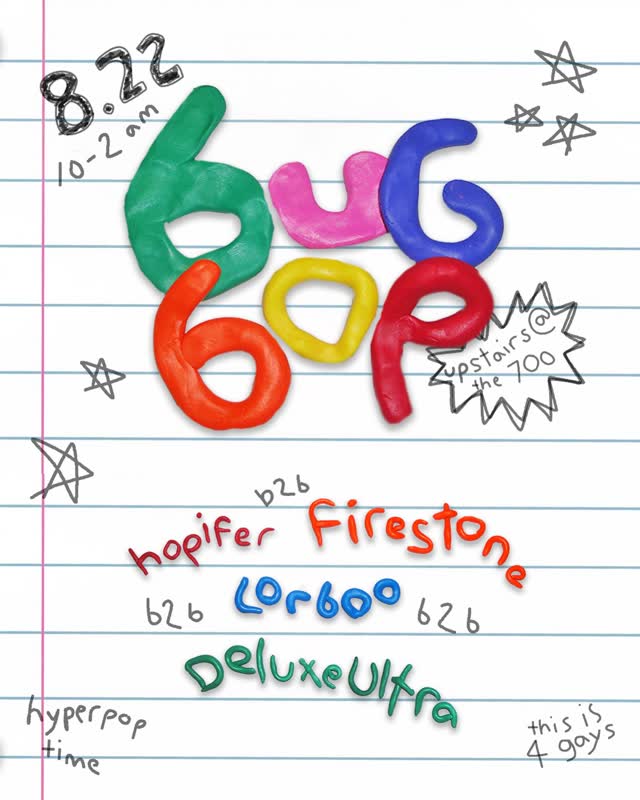 8.22
10-2 am
buG
bop
upstairs@
the 700
b2b
hopifer Firestone
b2b Lorboo b2b
DeluxeUltra
hyperpop
time
this is
4 gays